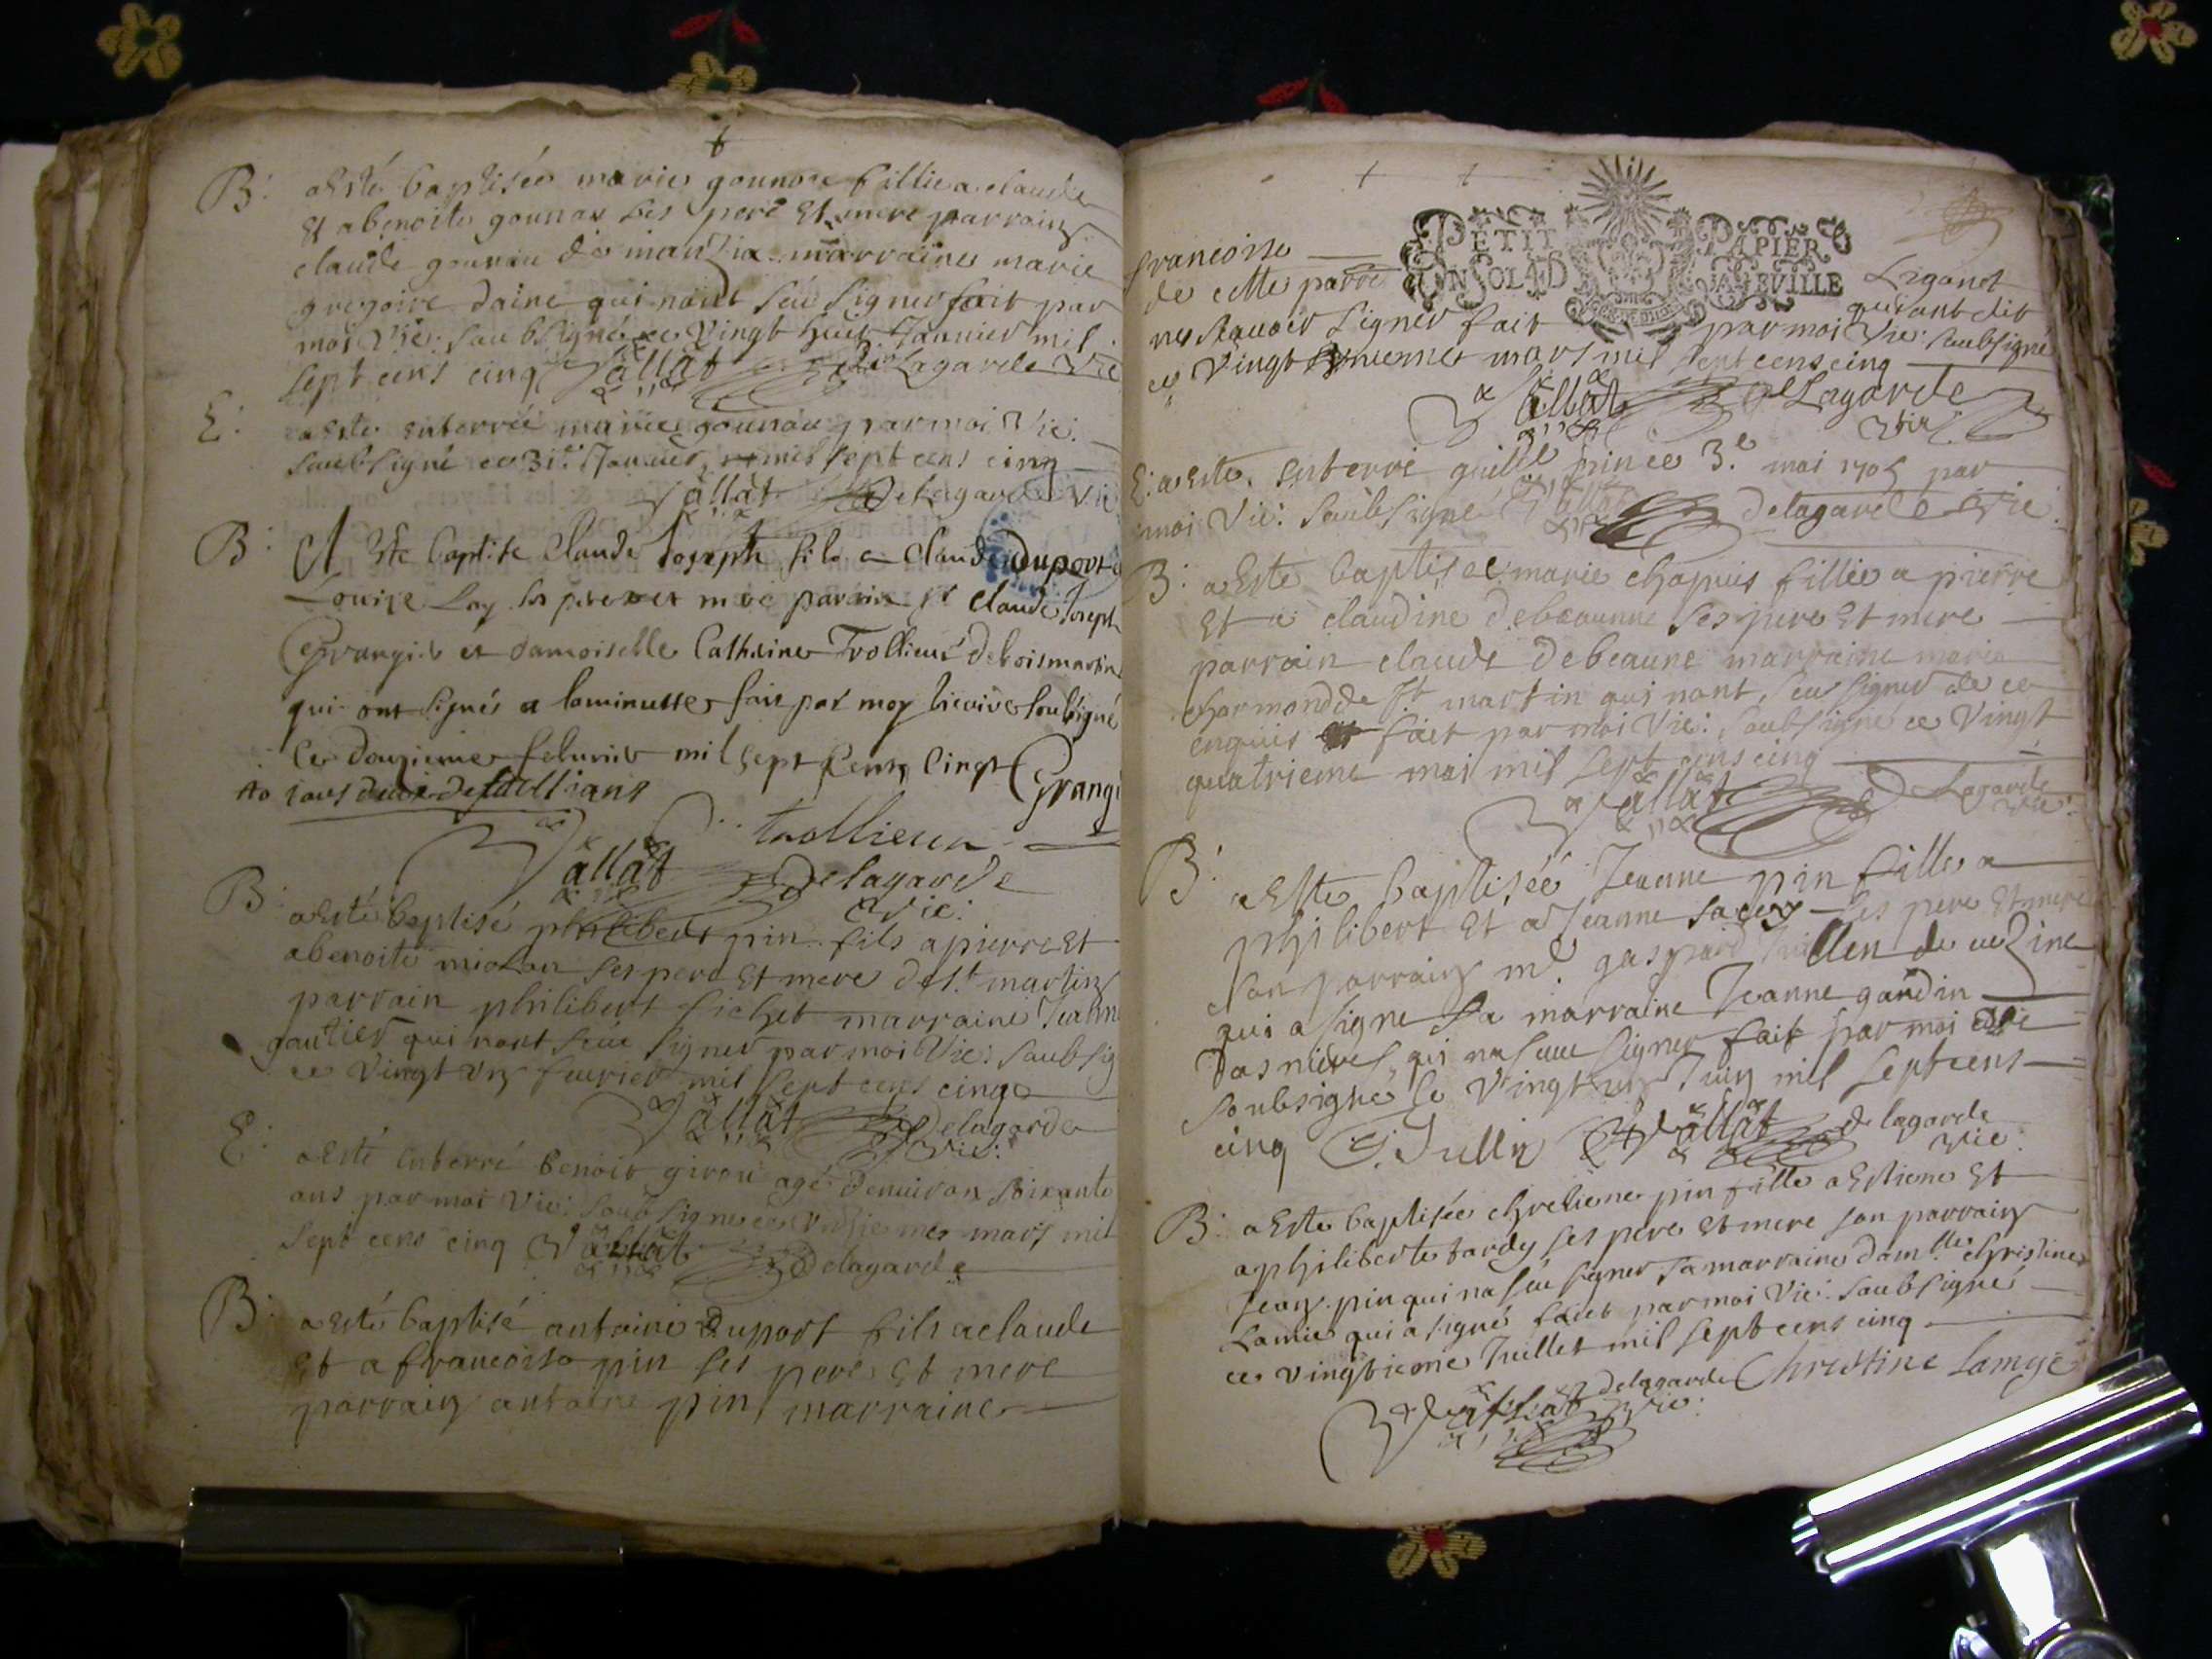 B: a Esté baptisée marie gounon fillie a claude
Et a benoite gounon ses pere Et mere parrain
claude gounon de manzia marraine marie
gregoire daine qui nont seu signer fait par
moi Vic: soubsigné ce vingt huit Janvier mil
sept cens cinq Vallat delagarde Vic
E: a Esté enterrée marie gounon par moi Vic:
soubsigné ce 31e Janvier mil sept cens cinq
Vallat delagarde Vic
B: A Ete baptise Claude Joseph fils a Claude duport
Louise Lay ses pere et mere parain sr Claude Joseph
Grangier et damoiselle Catherine Trollieur deboismartin
qui ont signés a laminutte fait par moy vicaire soubsigné
le douzieme febvrier mil sept cents cinq Grangi
trollieur
Vallat delagarde
Vic:
B: a Esté baptisé philibert pin fils a pierre Et
a benoite miolan ses pere Et mere de st martin
parrain philibert fichet marraine Jeanne
gautier qui nont seu signer par moi Vic: soubsig
ce vingt un feurier mil sept cens cinq
Vallat delagarde
Vic:
E: a Esté enterré benoit girou agé denuiron soixante
ans par moi Vic: soubsigné ce onzieme mars mil
sept cens cinq Vallat delagarde
B: a Esté baptisé antoine Duport fils a claude
Et a francoise pin ses pere Et mere
parrain antoine pin marraine
PETIT PAPIER
UN SOL 4D LA FEVILLE
francoise Liganet
de cette parre qui ont dit
ne scauoir signer fait par moi Vic: soubsigné
ce vingt mars mil sept cens cinq
Vallat delagarde
Vic
E: a Esté Enterré guille pin ce 3.e mai 1705 par
moi Vic: soubsigné Vallat delagarde Vic:
B: a Esté baptisée marie chapuis fillie a pierre
Et a claudine debeaunne ses pere Et mere
parrain claude debeaune marraine marie
charmond de st martin qui nont seu signer de ce
enquis fait par moi Vic: soubsigné ce vingt
quatrieme mai mil sept cens cinq
Vallat delagarde
Vic:
B: a Esté baptisée Jeanne pin fille a
philibert Et a Jeanne ses pere Et mere
son parrain mr. gaspard
qui a signe sa marraine Jeanne gardin
qui na seue signer fait par moi Vic
soubsigné le vingt un Juin mil sept cens
cinq G. Jullin Vallat delagarde
Vic:
B: a Esté baptisée chretiene pin fille a Estiene Et
a philiberte tardy ses pere Et mere son parrain
Jean pin qui na seu signer sa marraine damlle christine
Lamie qui a signé faict par moi Vic: soubsigné
ce vingtieme Juillet mil sept cens cinq
Vallat delagarde Christine Lamye
Vic: